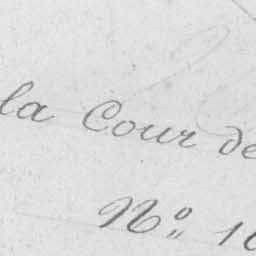 la Cour de
Nº 10